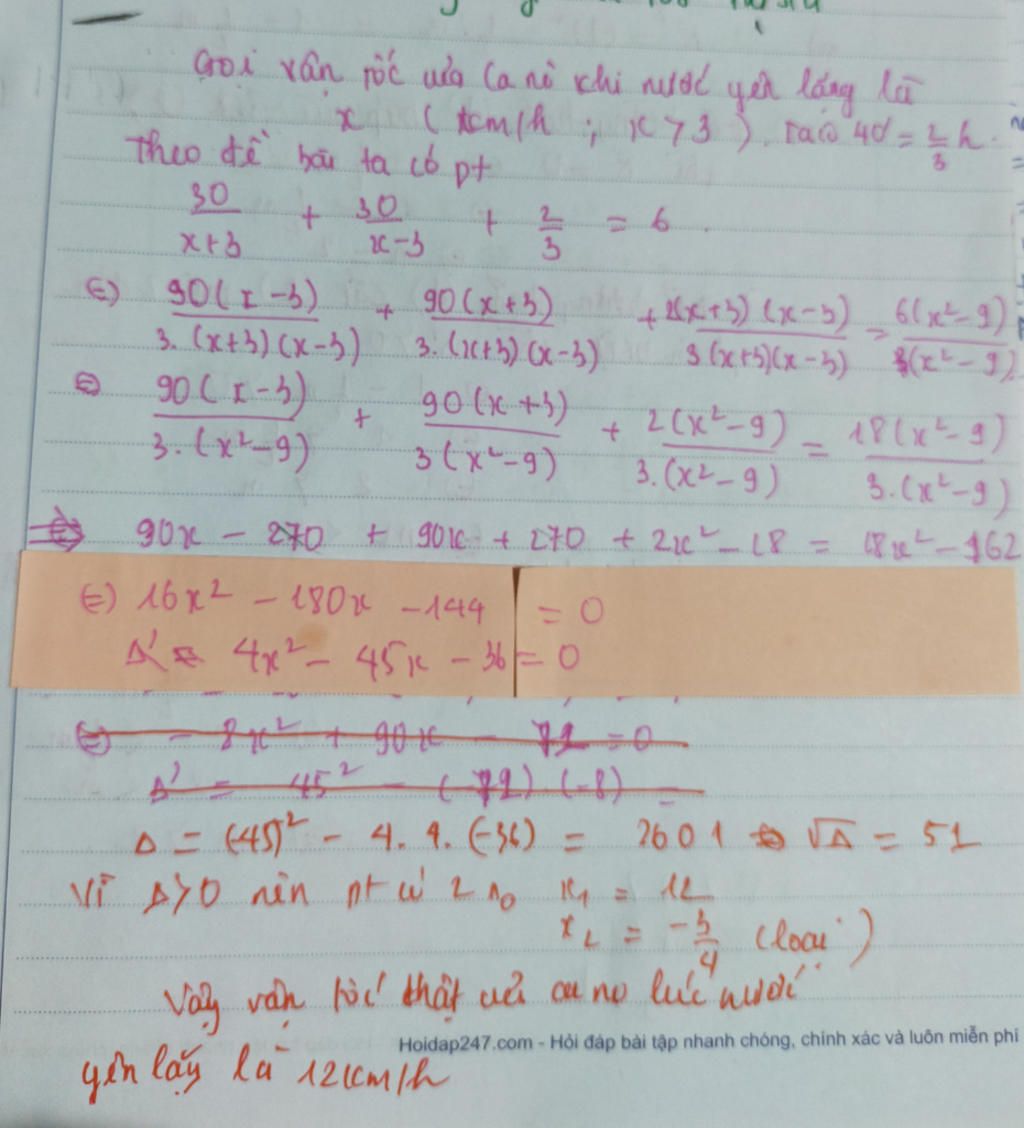 Gọi vận tốc của Ca nô khi nước yên lặng là
x ( km/h ; x > 3 ). 40' = 2/3 h.
Theo đề bài ta có pt
30/(x+3) + 30/(x-3) + 2/3 = 6
(=) 90(x-3)/3.(x+3)(x-3) + 90(x+3)/3.(x+3)(x-3) + 2(x+3)(x-3)/3(x+3)(x-3) = 6(x²-9)/3(x²-9)
(=) 90(x-3)/3.(x²-9) + 90(x+3)/3(x²-9) + 2(x²-9)/3.(x²-9) = 18(x²-9)/3.(x²-9)
90x - 270 + 90x + 270 + 2x² - 18 = 18x² - 162
(=) 16x² - 180x - 144 = 0
4x² - 45x - 36 = 0
(=) - 8x² + 90x - 72 = 0
Δ' = 45² - (-72).(-8) =
Δ = (-45)² - 4.4.(-36) = 2601 √Δ = 51
Vì Δ>0 nên pt có 2 n₀ x₁ = 12
x₂ = -3/4 (loại)
Vậy vận tốc thật của ca no lúc nước
yên lặng là 12km/h
Hoidap247.com - Hỏi đáp bài tập nhanh chóng, chính xác và luôn miễn phí